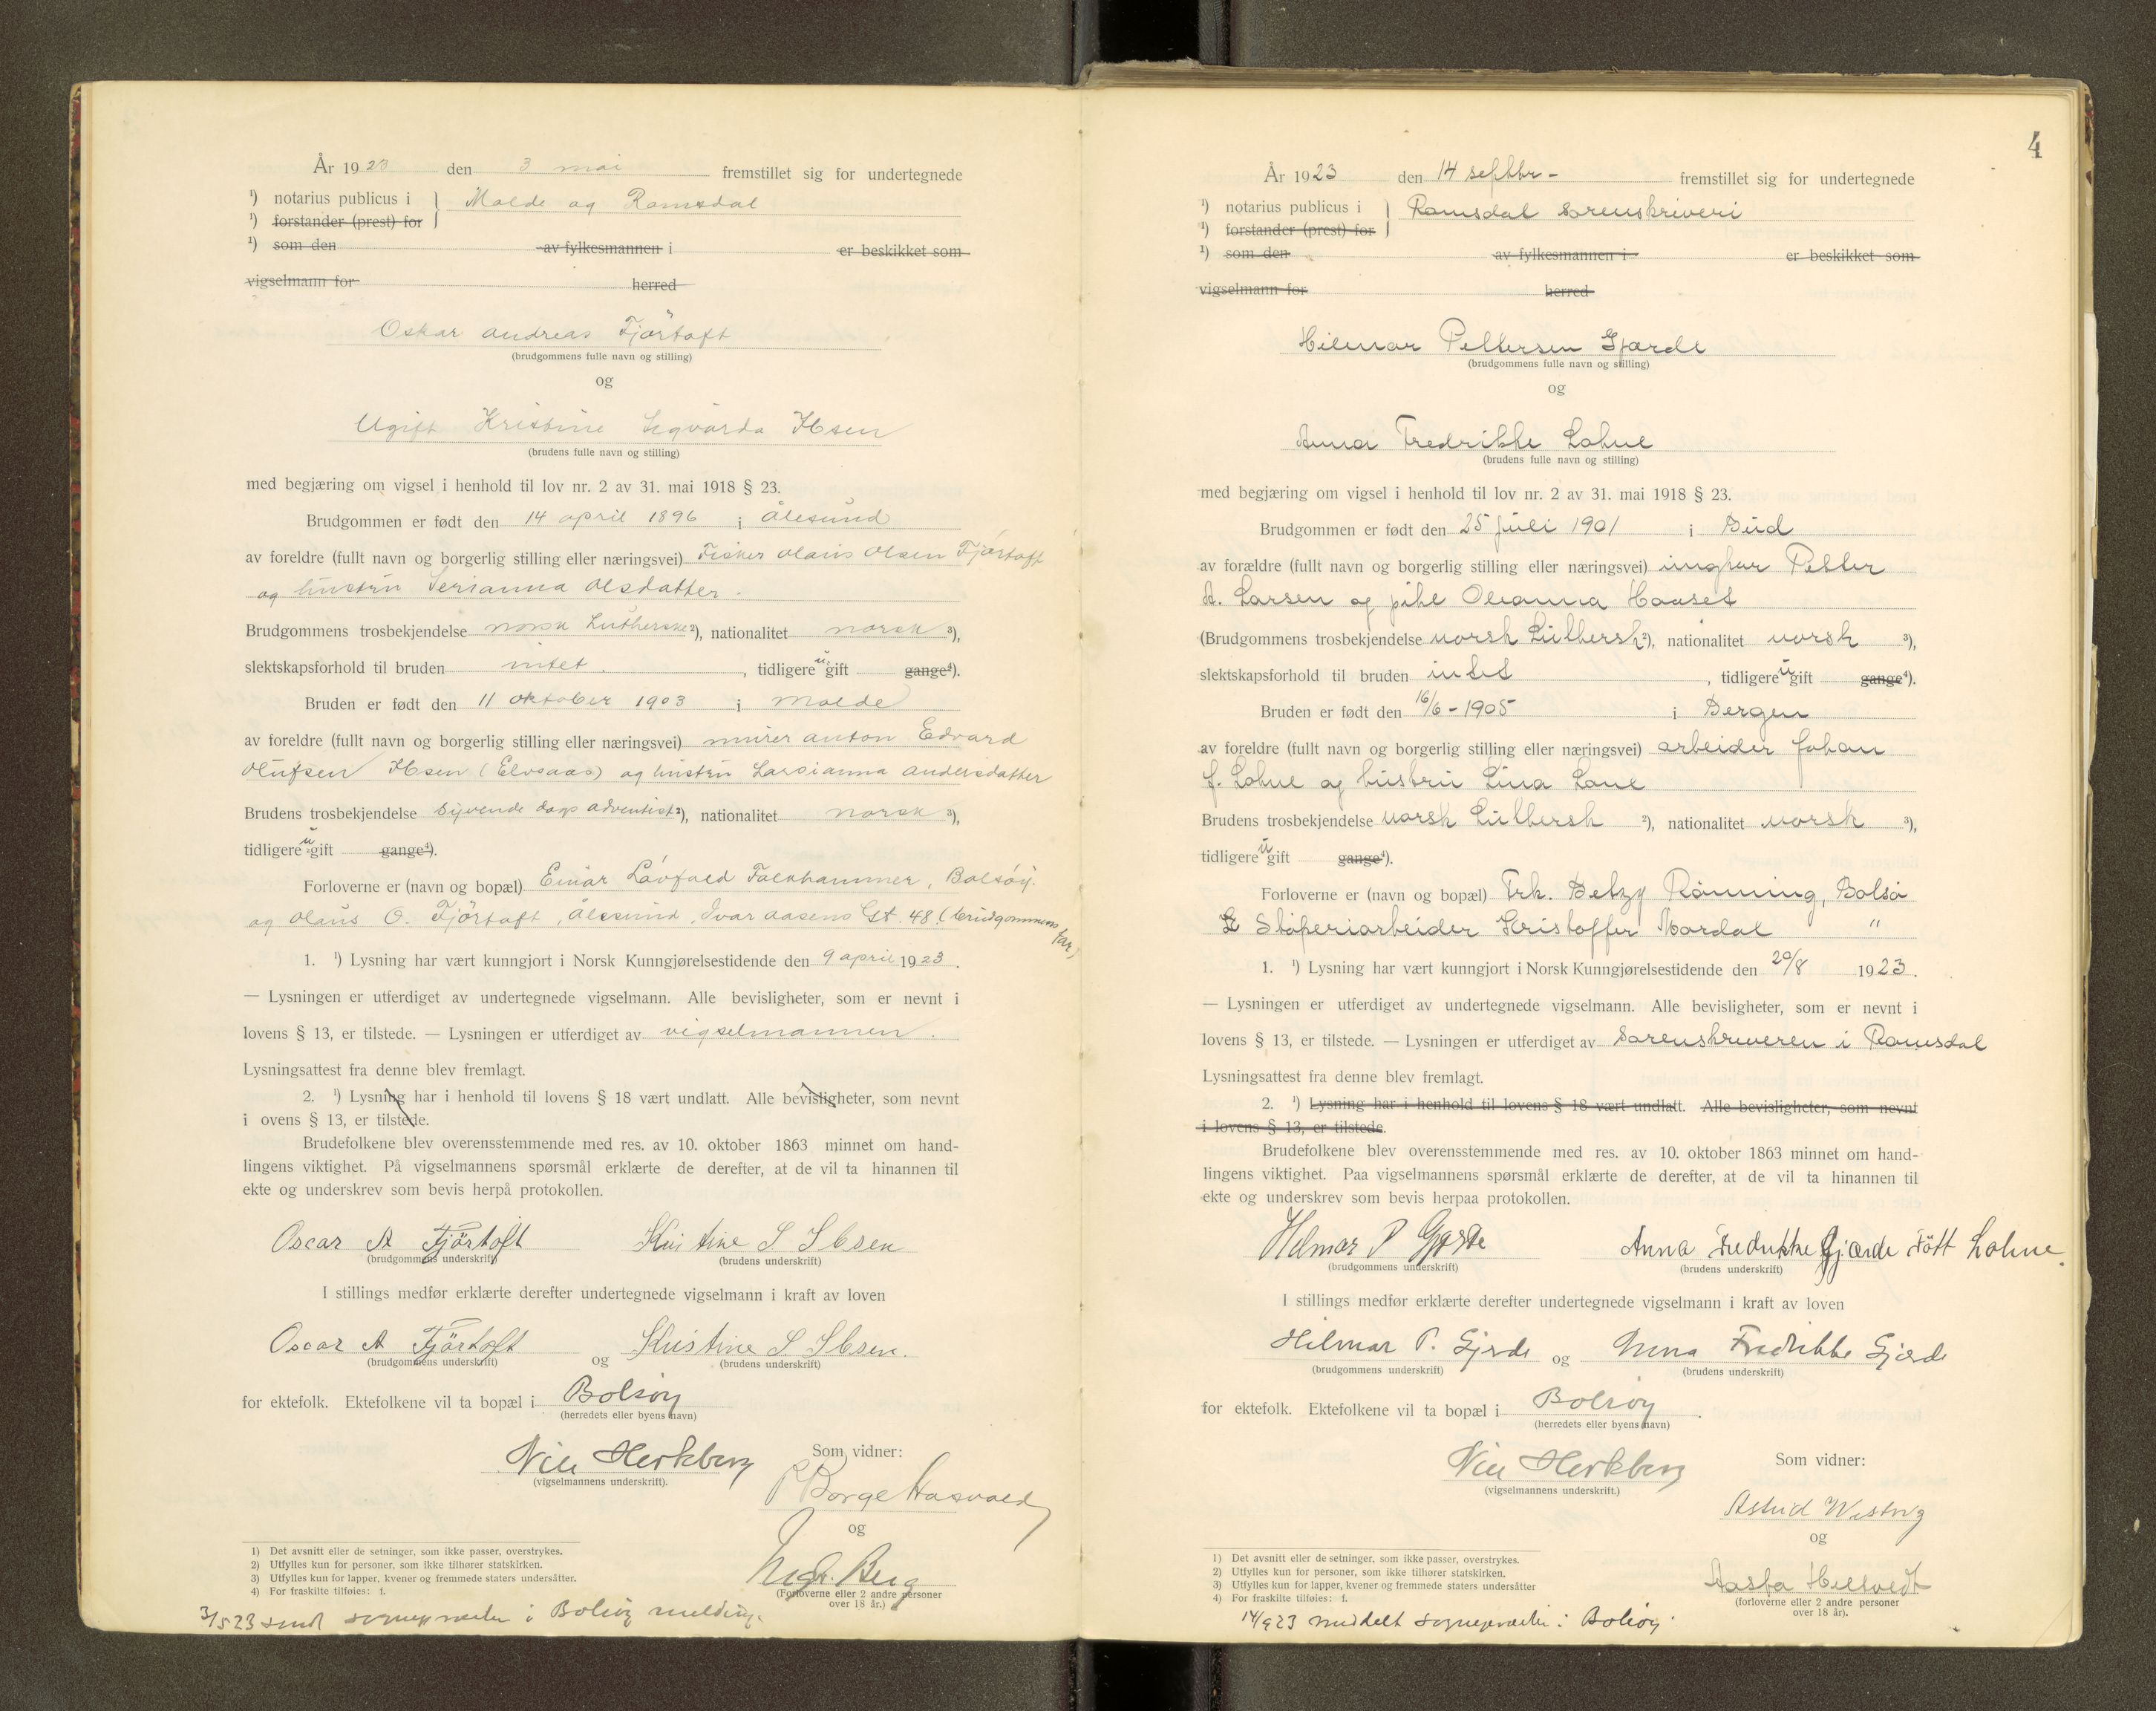 År 1923 den 3 mai fremstillet sig for undertegnede
¹) notarius publicus i } Molde og Romsdal
¹) forstander (prest) for
¹) som den av fylkesmannen i er beskikket som
vigselmann for herred
Oskar Andreas Fjörtoft
(brudgommens fulle navn og stilling)
og
Ugift Kristine Sigvarda Ibsen
(brudens fulle navn og stilling)
med begjæring om vigsel i henhold til lov nr. 2 av 31. mai 1918 § 23.
Brudgommen er født den 14 april 1896 i Ålesund
av foreldre (fullt navn og borgerlig stilling eller næringsvei) Fisker Olaus Olsen Fjørtoft
og hustru Serianna Olsdatter.
Brudgommens trosbekjendelse norsk Lutherske ²), nationalitet norsk ³),
slektskapsforhold til bruden intet. , tidligere u gift gange⁴).
Bruden er født den 11 oktober 1903 i Molde
av foreldre (fullt navn og borgerlig stilling eller næringsvei) murer Anton Edvard
Olufsen Ibsen (Elvsaas) og hustru Larsianna Andersdatter
Brudens trosbekjendelse syvende dags adventist ²), nationalitet norsk ³),
tidligere u gift gange⁴).
Forloverne er (navn og bopæl) Einar Falkhammer, Bolsöy.
og Olaus O. Fjörtoft, Ålesund, Ivar Aasens Gt. 48 (brudgommens far)
1. ¹) Lysning har vært kunngjort i Norsk Kunngjørelsestidende den 9 april 1923.
— Lysningen er utferdiget av undertegnede vigselmann. Alle bevisligheter, som er nevnt i
lovens § 13, er tilstede. — Lysningen er utferdiget av vigselmannen.
Lysningsattest fra denne blev fremlagt.
2. ¹) Lysning har i henhold til lovens § 18 vært undlatt. Alle bevisligheter, som nevnt
i ovens § 13, er tilstede.
Brudefolkene blev overensstemmende med res. av 10. oktober 1863 minnet om hand-
lingens viktighet. På vigselmannens spørsmål erklærte de derefter, at de vil ta hinannen til
ekte og underskrev som bevis herpå protokollen.
Oscar A Fjörtoft Kristine S. Ibsen
(brudgommens underskrift) (brudens underskrift)
I stillings medfør erklærte derefter undertegnede vigselmann i kraft av loven
Oscar A Fjörtoft og Kristine S. Ibsen.
(brudgommens underskrift) (brudens underskrift)
for ektefolk. Ektefolkene vil ta bopæl i Bolsöy
(herredets eller byens navn)
Som vidner:
Hertzberg
(vigselmannens underskrift).
Borge
og
Berg
(Forloverne eller 2 andre personer
over 18 år.)
1) Det avsnitt eller de setninger, som ikke passer, overstrykes.
2) Utfylles kun for personer, som ikke tilhører statskirken.
3) Utfylles kun for lapper, kvener og fremmede staters undersåtter.
4) For fraskilte tilføies: f.
3/5 23 sendt sogneprästen i Bolsöy melding.
4
År 1923 den 14 septbr- fremstillet sig for undertegnede
¹) notarius publicus i } Romsdal sorenskriveri
¹) forstander (prest) for
¹) som den av fylkesmannen i er beskikket som
vigselmann for herred
Hilmar Pettersen Gjærde
(brudgommens fulle navn og stilling)
og
Anna Fredrikke Lohne
(brudens fulle navn og stilling)
med begjæring om vigsel i henhold til lov nr. 2 av 31. mai 1918 § 23.
Brudgommen er født den 25 juli 1901 i Bud
av forældre (fullt navn og borgerlig stilling eller næringsvei) ungkar Petter
A. Larsen og pike Oleanna Haaset
(Brudgommens trosbekjendelse norsk Luthersk ²), nationalitet norsk ³),
slektskapsforhold til bruden intet , tidligere u gift gange⁴).
Bruden er født den 16/6 - 1905 i Bergen
av foreldre (fullt navn og borgerlig stilling eller næringsvei) arbeider Johan
J. Lohne og hustru Lina Lone
Brudens trosbekjendelse norsk Luthersk ²), nationalitet norsk ³),
tidligere u gift gange⁴).
Forloverne er (navn og bopæl) Frk. Betzy Rønning, Bolsö
Støperiarbeider Kristoffer Mordal "
1. ¹) Lysning har vært kunngjort i Norsk Kunngjørelsestidende den 20/8 1923.
— Lysningen er utferdiget av undertegnede vigselmann. Alle bevisligheter, som er nevnt i
lovens § 13, er tilstede. — Lysningen er utferdiget av Sorenskriveren i Romsdal
Lysningsattest fra denne blev fremlagt.
2. ¹) Lysning har i henhold til lovens § 18 vært undlatt. Alle bevisligheter, som nevnt
i lovens § 13, er tilstede.
Brudefolkene blev overensstemmende med res. av 10. oktober 1863 minnet om hand-
lingens viktighet. Paa vigselmannens spørsmål erklærte de derefter, at de vil ta hinannen til
ekte og underskrev som bevis herpaa protokollen.
Hilmar P Gjærde Anna Fredrikke Gjærde Fött Lohne.
(brudgommens underskrift) (brudens underskrift)
I stillings medfør erklærte derefter undertegnede vigselmann i kraft av loven
Hilmar P. Gjerde og Anna Fredrikke Gjærde
(brudgommens underskrift) (brudens underskrift)
for ektefolk. Ektefolkene vil ta bopæl i Bolsöy.
(herredets eller byens navn)
Som vidner:
Hertzberg
(vigselmannens underskrift.)
Astrid Westvig
og
Aasta Hellvedt
(forloverne eller 2 andre personer
over 18 år).
1) Det avsnitt eller de setninger, som ikke passer, overstrykes.
2) Utfylles kun for personer, som ikke tilhører statskirken.
3) Utfylles kun for lapper, kvener og fremmede staters undersåtter
4) For fraskilte tilføies: f.
14/9 23 meddelt sogneprästen i Bolsöy.